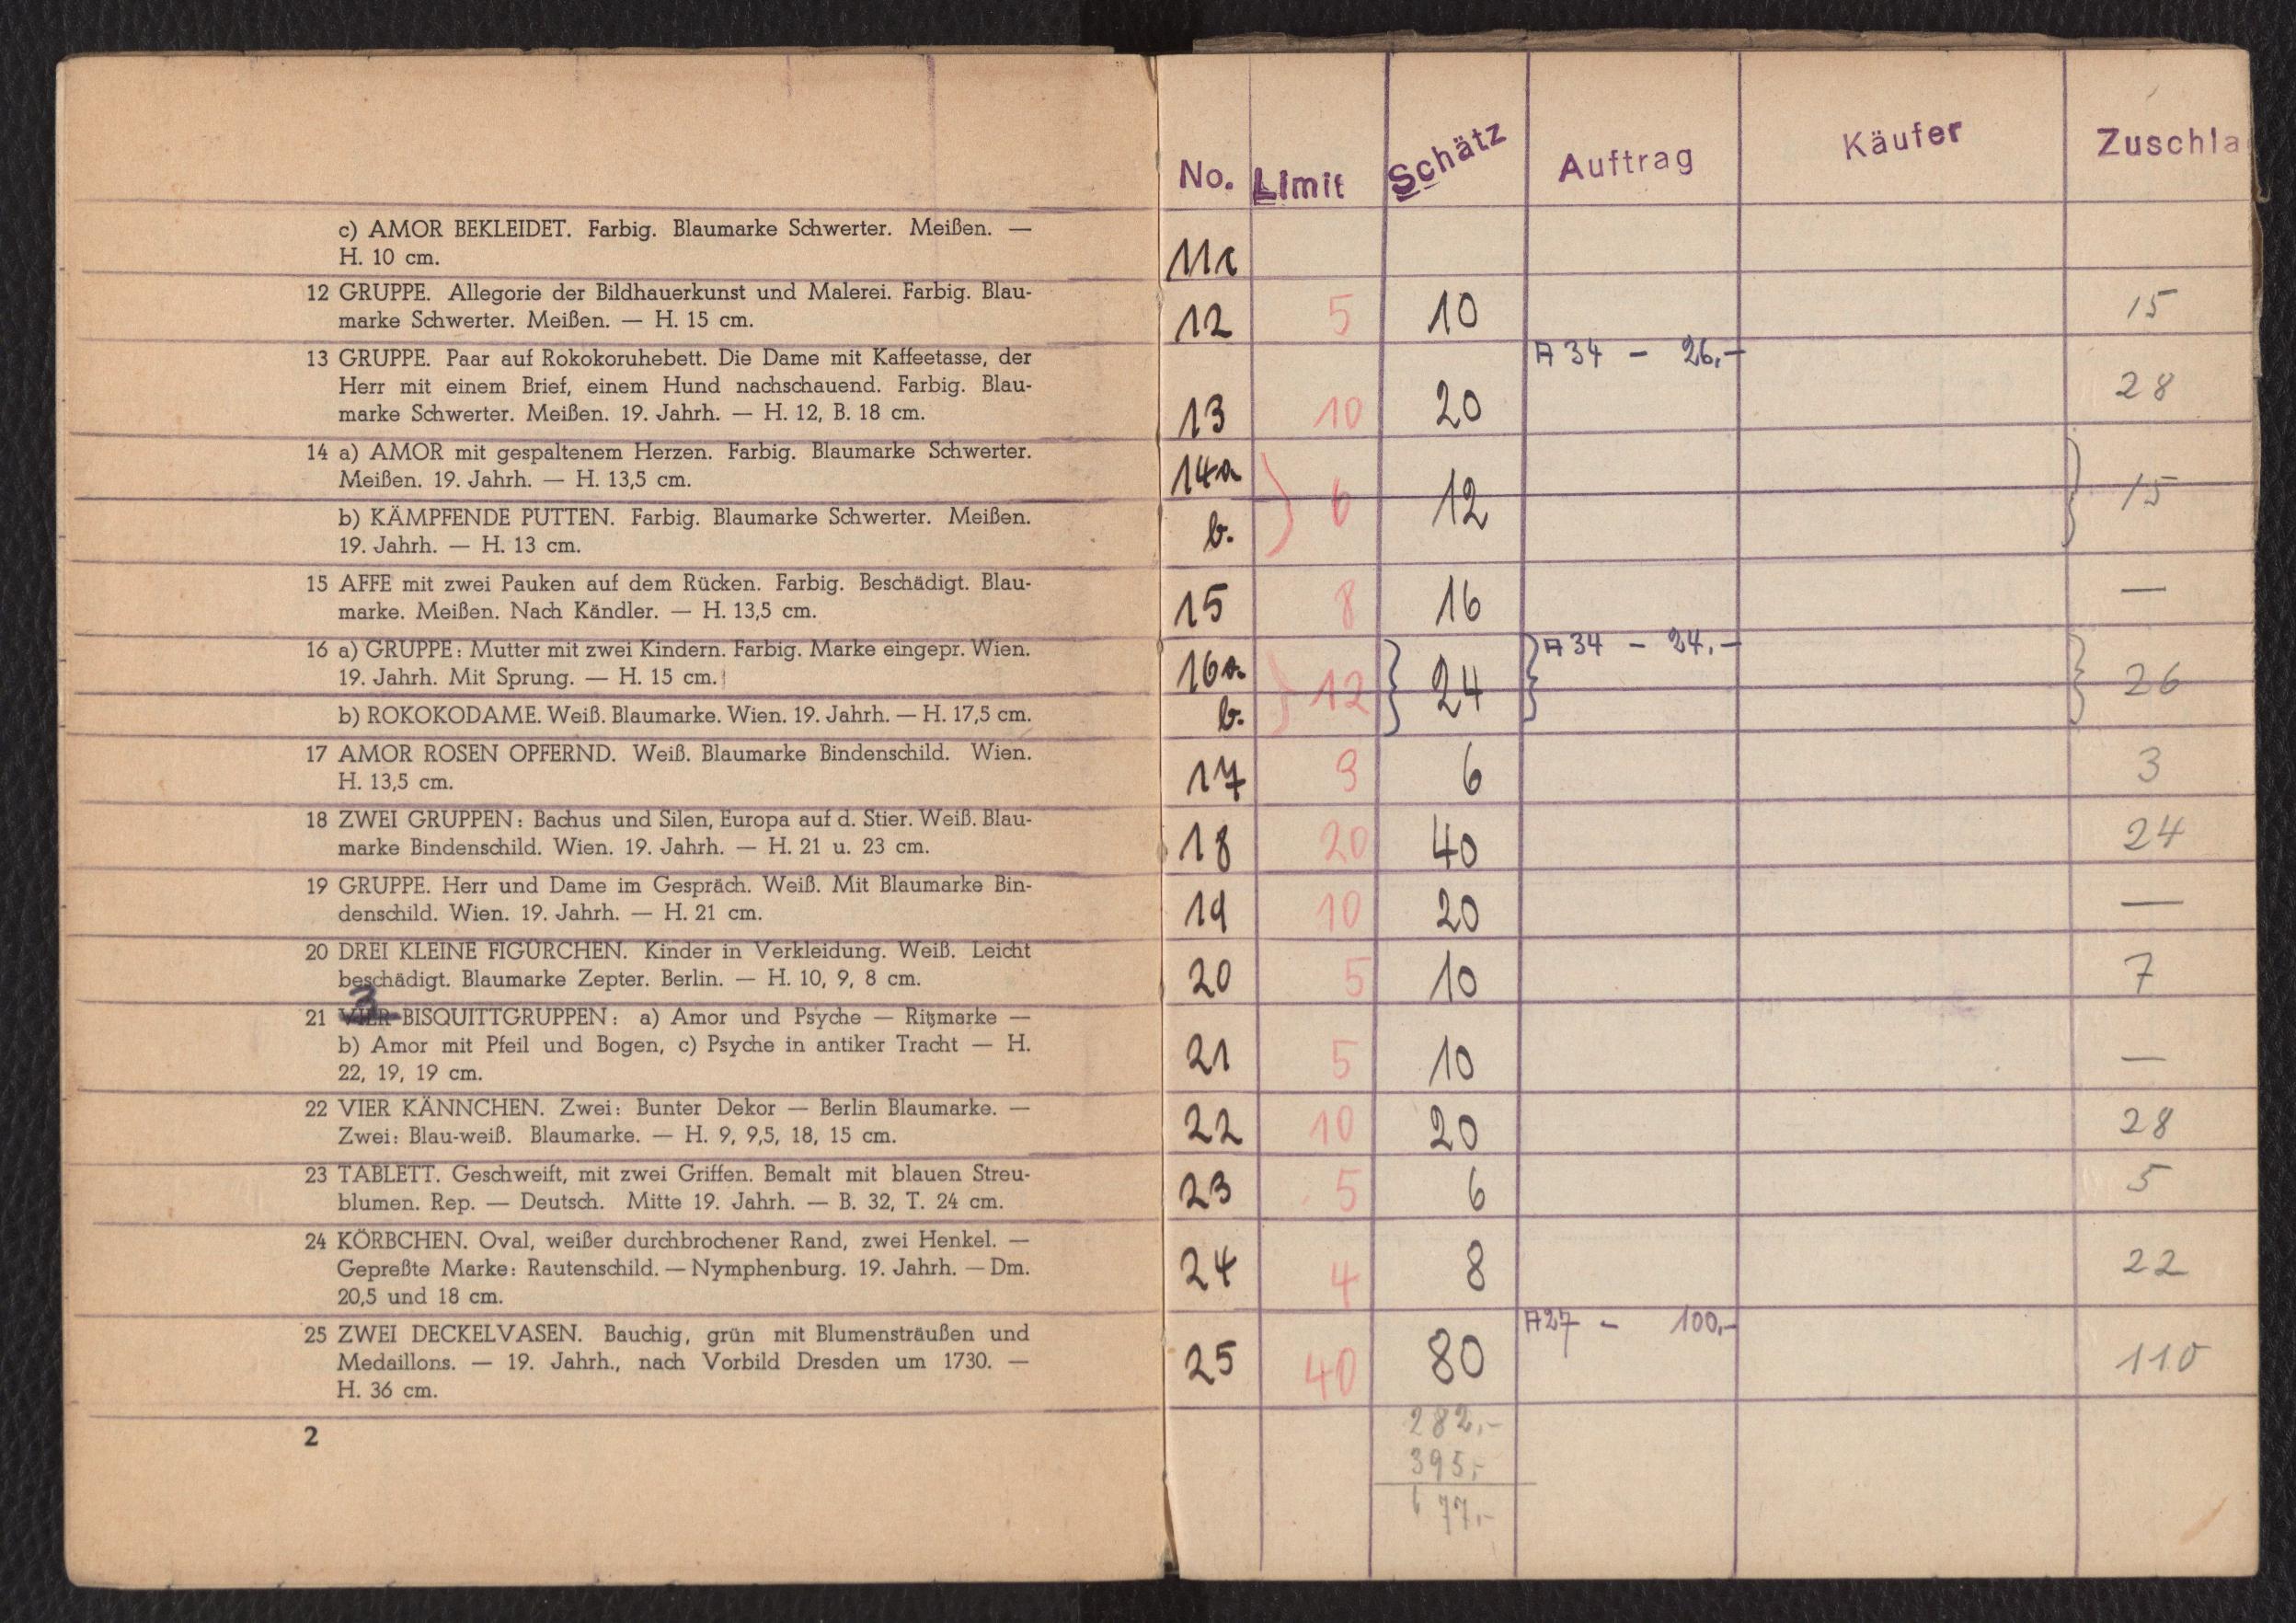 c) AMOR BEKLEIDET. Farbig. Blaumarke Schwerter. Meißen. —
H. 10 cm.
12 GRUPPE. Allegorie der Bildhauerkunst und Malerei. Farbig. Blau-
marke Schwerter. Meißen. — H. 15 cm.
13 GRUPPE. Paar auf Rokokoruhebett. Die Dame mit Kaffeetasse, der
Herr mit einem Brief, einem Hund nachschauend. Farbig. Blau-
marke Schwerter. Meißen. 19. Jahrh. — H. 12, B. 18 cm.
14 a) AMOR mit gespaltenem Herzen. Farbig. Blaumarke Schwerter.
Meißen. 19. Jahrh. — H. 13,5 cm.
b) KÄMPFENDE PUTTEN. Farbig. Blaumarke Schwerter. Meißen.
19. Jahrh. — H. 13 cm.
15 AFFE mit zwei Pauken auf dem Rücken. Farbig. Beschädigt. Blau-
marke. Meißen. Nach Kändler. — H. 13,5 cm.
16 a) GRUPPE: Mutter mit zwei Kindern. Farbig. Marke eingepr. Wien.
19. Jahrh. Mit Sprung. — H. 15 cm.
b) ROKOKODAME. Weiß. Blaumarke. Wien. 19. Jahrh. — H. 17,5 cm.
17 AMOR ROSEN OPFERND. Weiß. Blaumarke Bindenschild. Wien.
H. 13,5 cm.
18 ZWEI GRUPPEN: Bachus und Silen, Europa auf d. Stier. Weiß. Blau-
marke Bindenschild. Wien. 19. Jahrh. — H. 21 u. 23 cm.
19 GRUPPE. Herr und Dame im Gespräch. Weiß. Mit Blaumarke Bin-
denschild. Wien. 19. Jahrh. — H. 21 cm.
20 DREI KLEINE FIGÜRCHEN. Kinder in Verkleidung. Weiß. Leicht
beschädigt. Blaumarke Zepter. Berlin. — H. 10, 9, 8 cm.
3
21 VIER BISQUITTGRUPPEN: a) Amor und Psyche — Ritzmarke —
b) Amor mit Pfeil und Bogen, c) Psyche in antiker Tracht — H.
22, 19, 19 cm.
22 VIER KÄNNCHEN. Zwei: Bunter Dekor — Berlin Blaumarke. —
Zwei: Blau-weiß. Blaumarke. — H. 9, 9,5, 18, 15 cm.
23 TABLETT. Geschweift, mit zwei Griffen. Bemalt mit blauen Streu-
blumen. Rep. — Deutsch. Mitte 19. Jahrh. — B. 32, T. 24 cm.
24 KÖRBCHEN. Oval, weißer durchbrochener Rand, zwei Henkel. —
Gepreßte Marke: Rautenschild. — Nymphenburg. 19. Jahrh. — Dm.
20,5 und 18 cm.
25 ZWEI DECKELVASEN. Bauchig, grün mit Blumensträußen und
Medaillons. — 19. Jahrh., nach Vorbild Dresden um 1730. —
H. 36 cm.
2
No. Limit Schätz Auftrag Käufer Zuschla
11c
12 5 10 15
A 34 - 26,-
13 10 20 28
14a 6 12 15
b.
15 8 16 —
A 34 - 24.-
16a 12 24 26
b.
17 3 6 3
18 20 40 24
19 10 20 —
20 5 10 7
21 5 10 —
22 10 20 28
23 5 6 5
24 4 8 22
A27 - 100,-
25 40 80 110
282,-
395,-
677,-